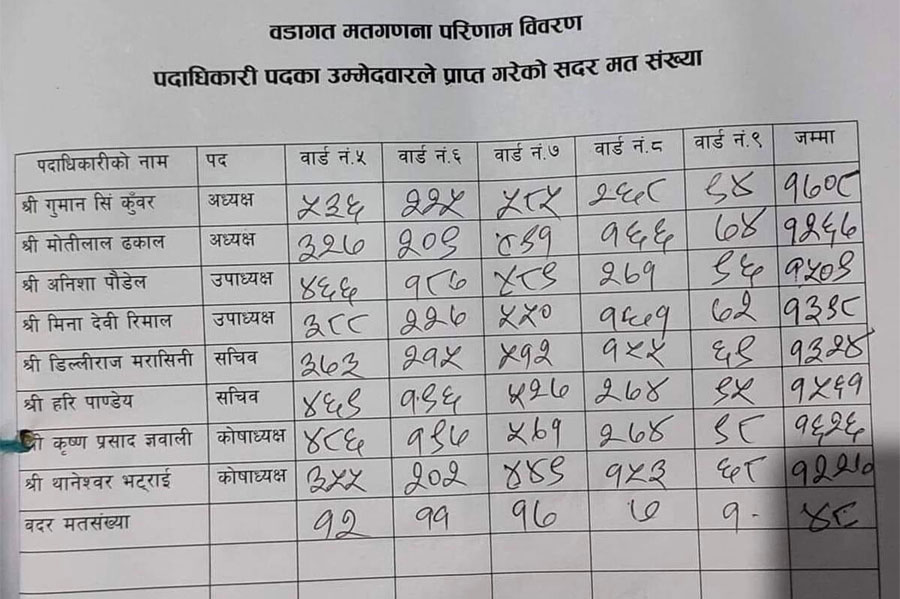 वडागत मतगणना परिणाम विवरण
पदाधिकारी पदका उम्मेदवारले प्राप्त गरेको सदर मत संख्या
पदाधिकारीको नाम पद वार्ड नं.५ वार्ड नं.६ वार्ड नं.७ वार्ड नं.८ वार्ड नं.९ जम्मा
श्री गुमान सिं कुँवर अध्यक्ष ५३६ २२५ ५८५ २६८ ९४ १७०८
श्री मोतीलाल ढकाल अध्यक्ष ३२७ २०९ ४९१ १६६ ७४ १२६७
श्री अनिशा पौडेल उपाध्यक्ष ४६६ १८७ ४८९ २७१ ९६ १५०९
श्री मिना देवी रिमाल उपाध्यक्ष ३८८ २२७ ५५० १६१ ७२ १३९८
श्री डिल्लीराज मरासिनी सचिव ३७३ २१५ ५१२ १५५ ६९ १३२४
श्री हरि पाण्डेय सचिव ४६९ १९६ ५२७ २७४ ९५ १५६१
श्री कृष्ण प्रसाद ज्ञवाली कोषाध्यक्ष ४८६ १९७ ५७१ २७४ ९८ १६२६
श्री थानेश्वर भट्राई कोषाध्यक्ष ३५५ २०२ ४४९ १५३ ६८ १२२७
वदर मतसंख्या १२ ११ १७ ७ १ ४८